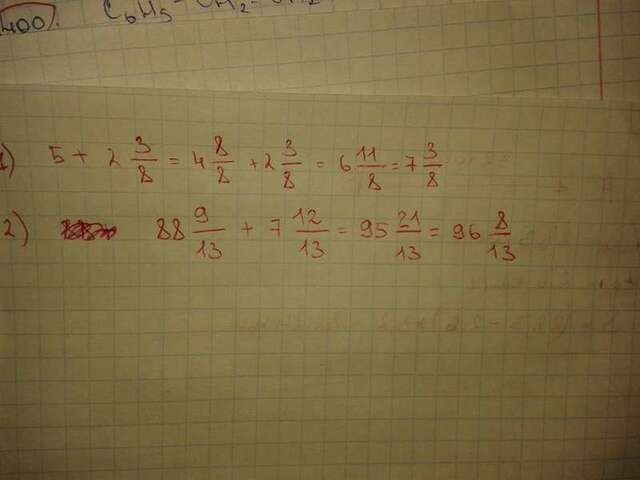 400. C₆H₅ - CH₂ -
1) 5 + 2 3/8 = 4 8/8 + 2 3/8 = 6 11/8 = 7 3/8
2) 88 9/13 + 7 12/13 = 95 21/13 = 96 8/13